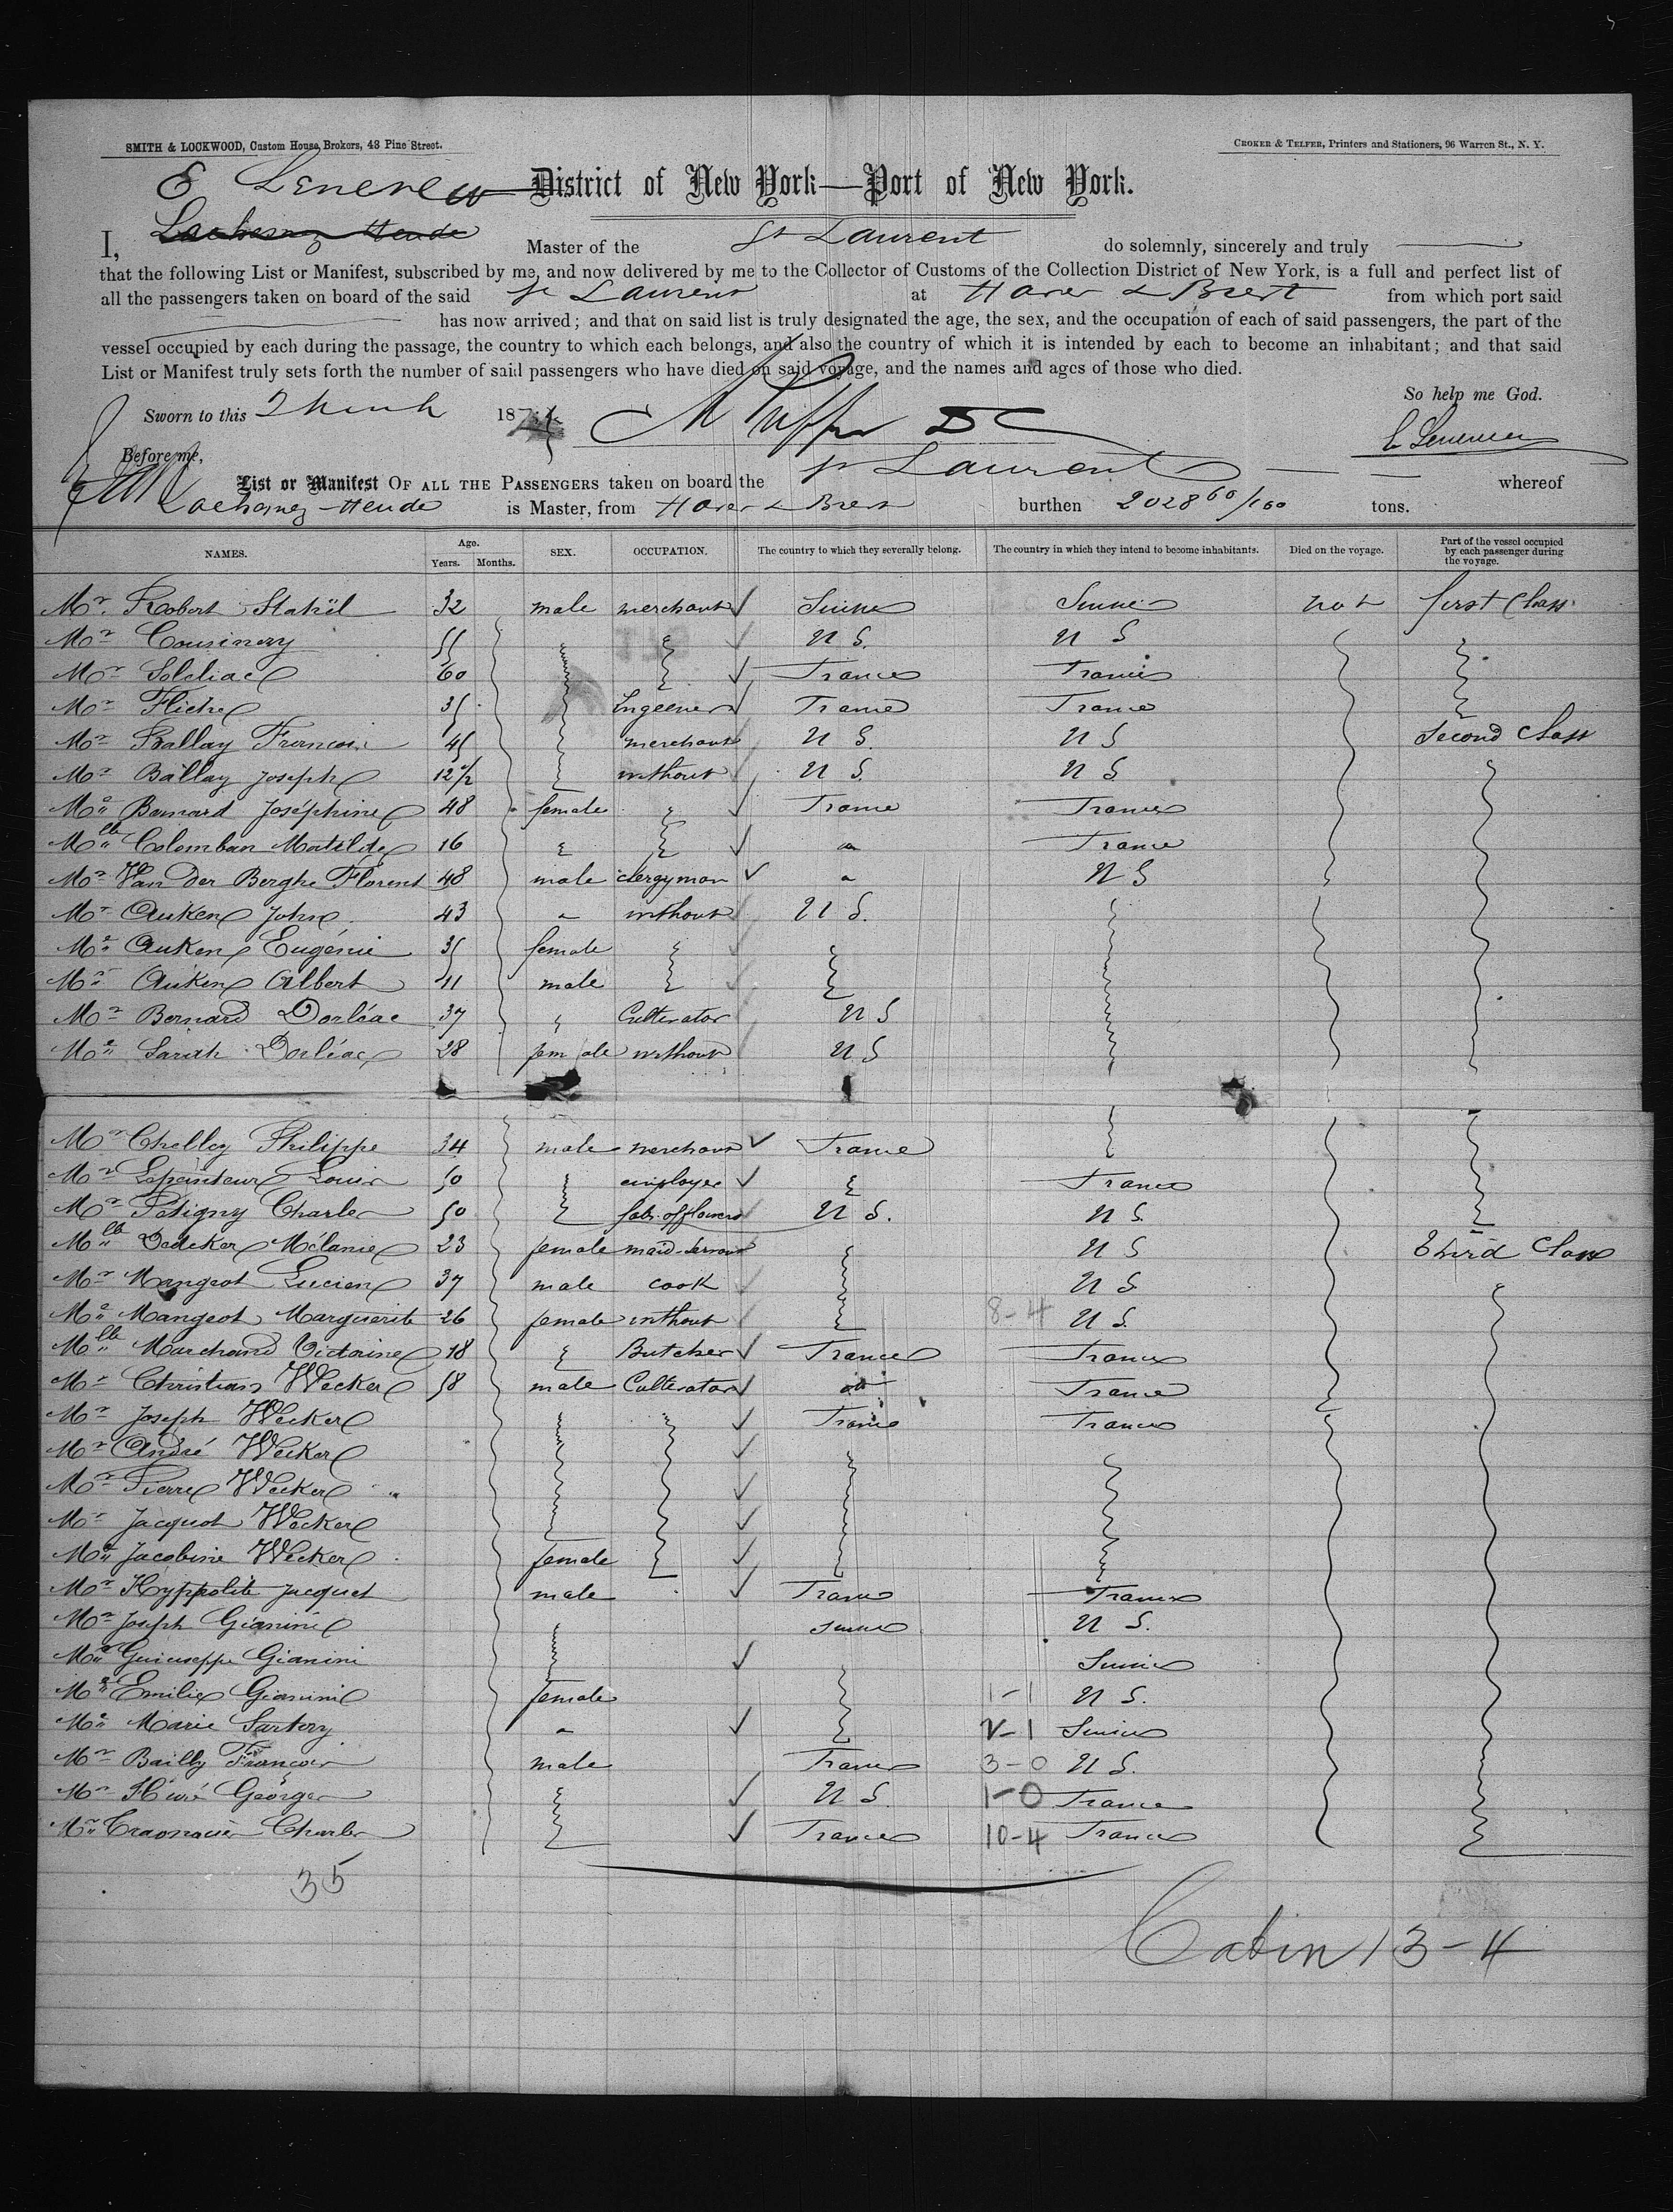 SMITH & LOCKWOOD, Custom House Brokers, 43 Pine Street.
CROKER & TELFER, Printers and Stationers, 96 Warren St., N. Y.
District of New York—Port of New York.
I, Master of the St Laurent do solemnly, sincerely and truly
that the following List or Manifest, subscribed by me, and now delivered by me to the Collector of Customs of the Collection District of New York, is a full and perfect list of
all the passengers taken on board of the said St Laurent at Havre & Brest from which port said
has now arrived; and that on said list is truly designated the age, the sex, and the occupation of each of said passengers, the part of the
vessel occupied by each during the passage, the country to which each belongs, and also the country of which it is intended by each to become an inhabitant; and that said
List or Manifest truly sets forth the number of said passengers who have died on said voyage, and the names and ages of those who died.
So help me God.
Sworn to this 187
Before me,
List or Manifest OF ALL THE PASSENGERS taken on board the St Laurent whereof
is Master, from Havre & Brest burthen 2028 60/100 tons.
NAMES. Age. Years. Months. SEX. OCCUPATION. The country to which they severally belong. The country in which they intend to become inhabitants. Died on the voyage. Part of the vessel occupied by each passenger during the voyage.
Mr. Robert Stahël 32 male merchant Suisse Suisse not first Class
Mr Cousinery 55 U S. U S
Mr 60 France France
Mr 35 Ingeenier France France
Mr Ballay Francois 45 merchant U S. U S second Class
Mr Ballay Joseph 12 1/2 without U S. U S
Me Bernard Joséphine 48 female France France
Mlle Colomban Matilde 16 " France
Mr Van Der Berghe Florent 48 male clergyman " U S
Mr Auken John 43 " without U S.
Me Auken Eugénie 35 female
Mr Auken Albert 11 male
Mr Bernard Dorléac 37 Cultivator U S
Me Sarah Dorléac 28 female without U S
Mr Chelley Philippe 34 male merchant France
Mr Lepeinteur Louis 50 employee France
Mr Petigny Charles 50 fabr. of flowers U S. U S
Mlle Dedeker Mélanie 23 female maid-servant U S third Class
Mr Mangeot Lucien 37 male cook U S
Me Mangeot Marguerite 26 female without 8-4 U S.
Mlle Marchand Victorine 18 Butcher France France
Mr Christian Wecker 58 male Cultivator France
Mr Joseph Wecker France France
Mr André Wecker
Mr Pierre Wecker "
Mr Jacquot Wecker
Me Jacobine Wecker female
Mr Hyppolite Jacquet male France France
Mr Joseph Gianini suisse U S.
Mr Guiuseppe Gianini Suisse
Me Emilie Gianini female 1-1 U S.
Me Marie Sartory " 2-1 Suisse
Mr Bailly Francois male France 3-0 U S.
Mr Georges U S 1-0 France
Mr Charles France 10-4 France
35
Cabin 13-4